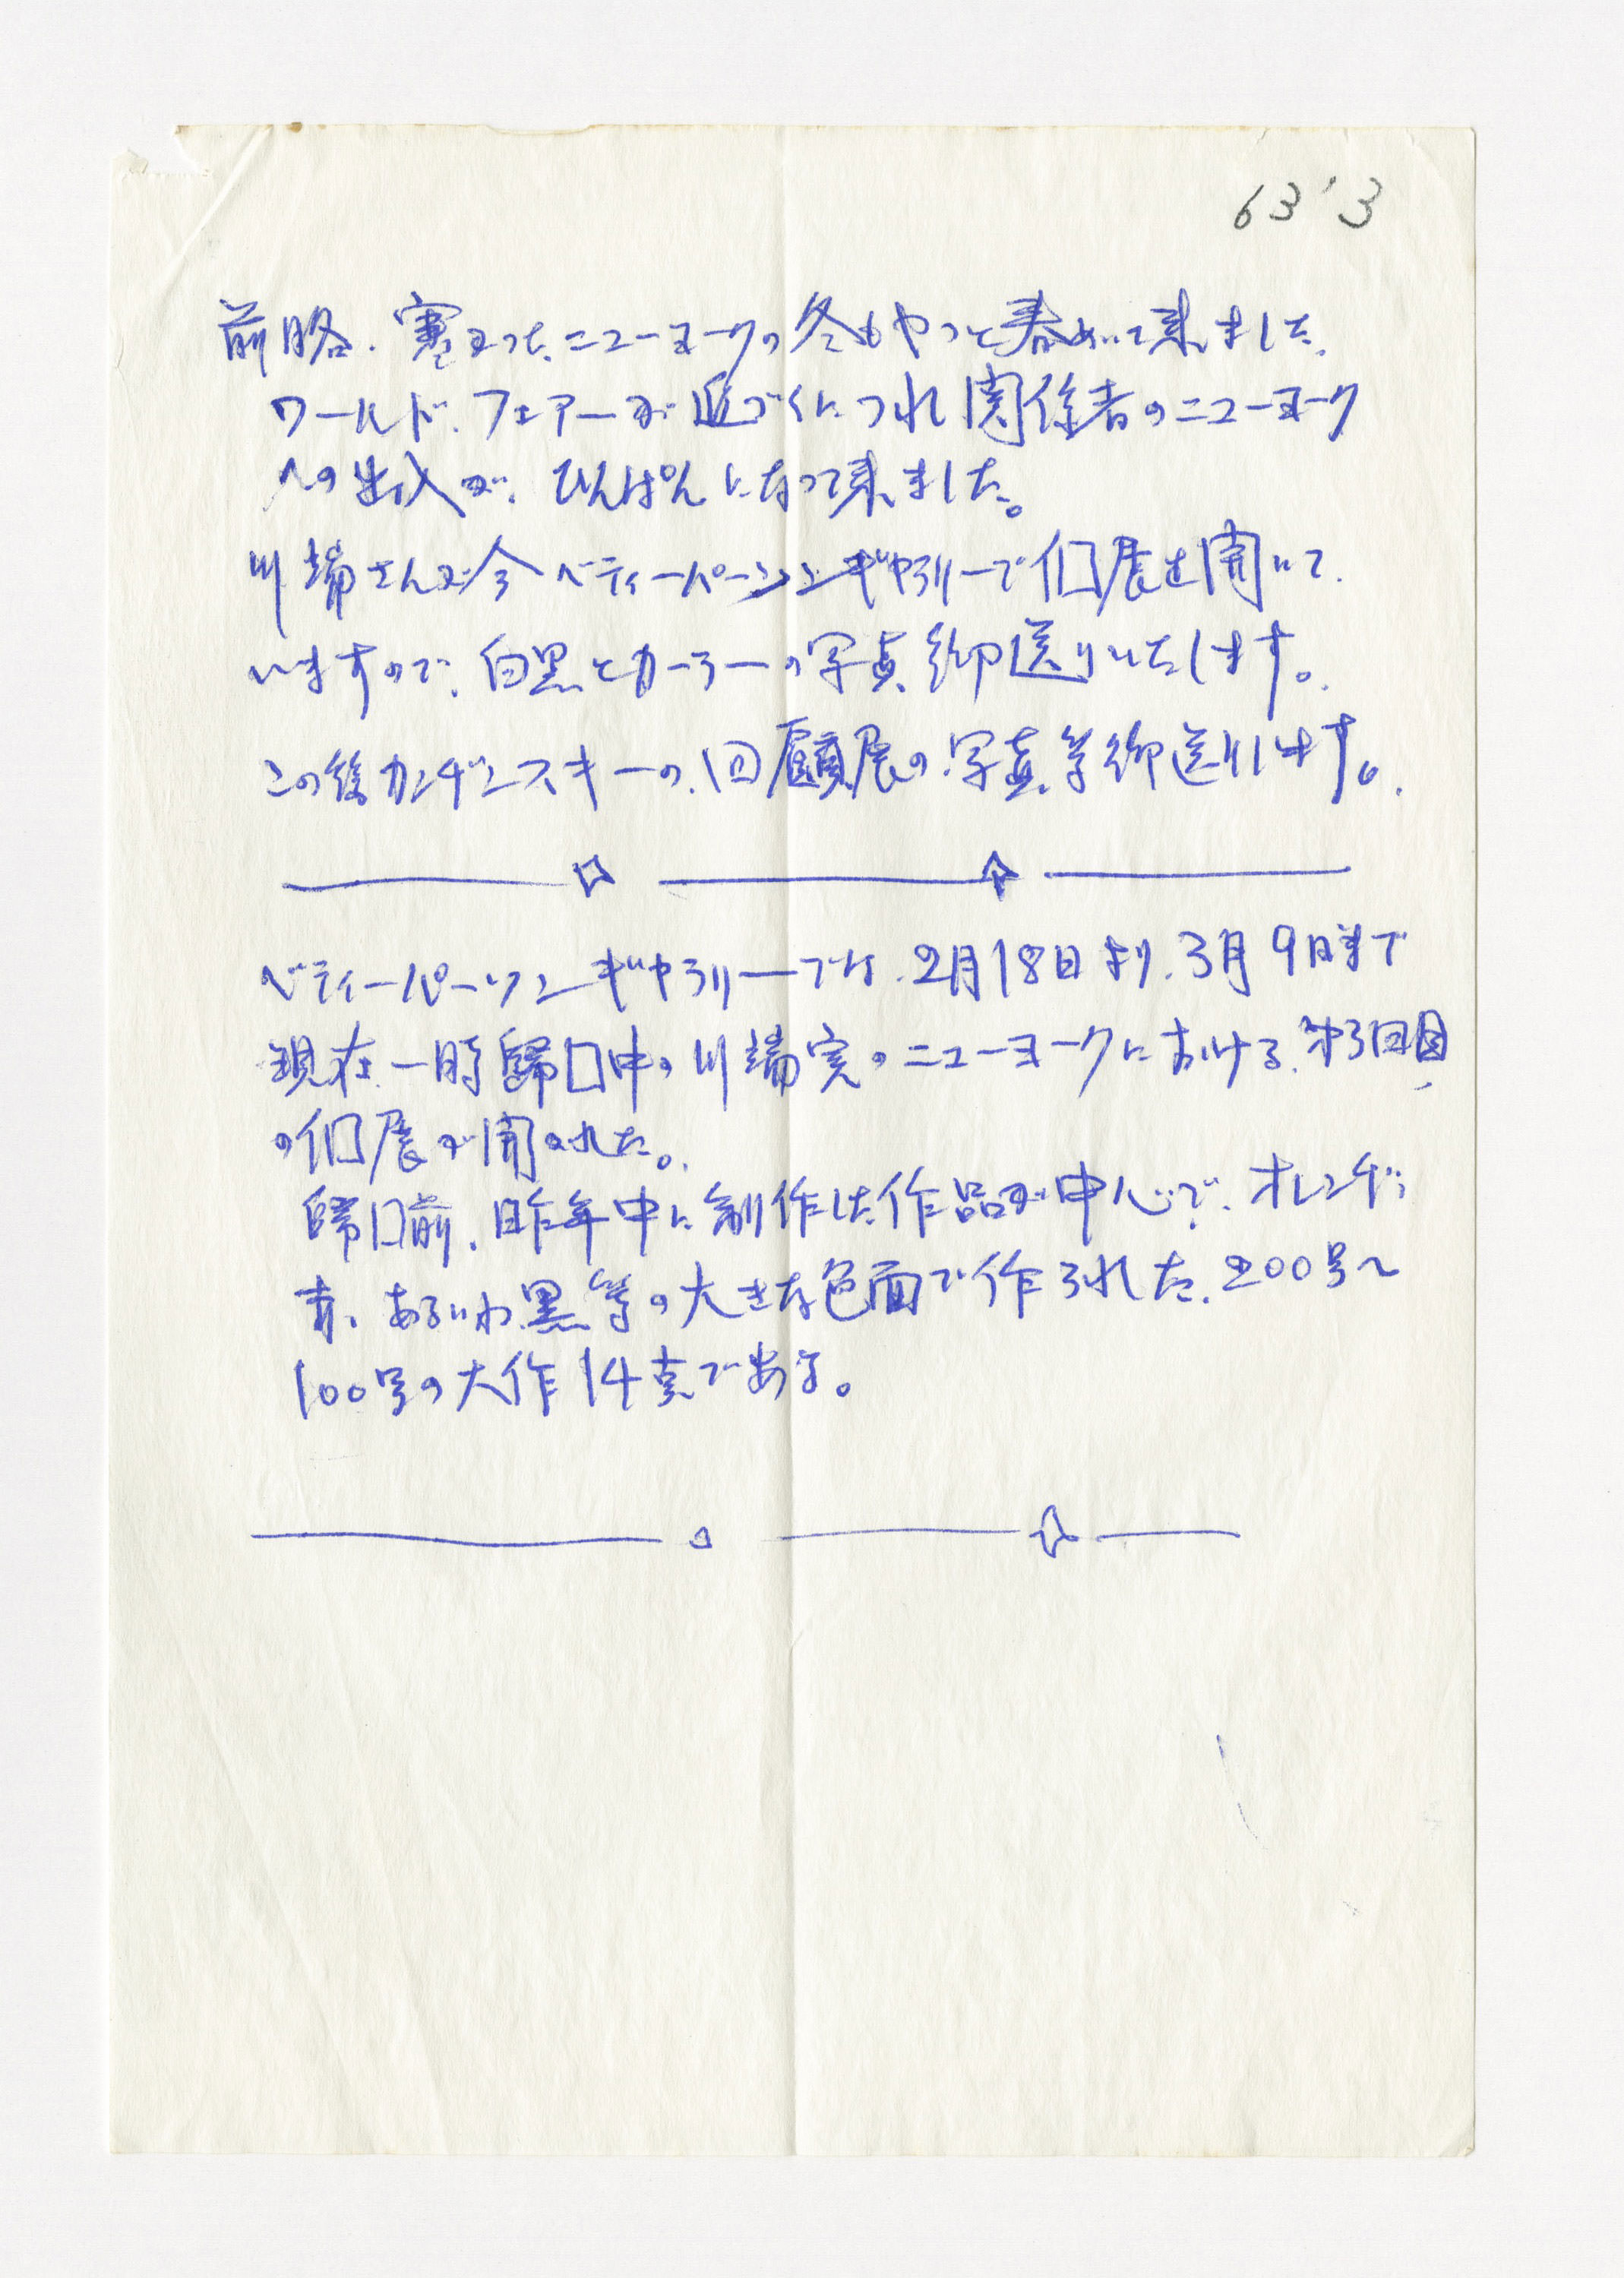 63'3
前略. 寒かった.ニューヨークの冬もやっと春めいて来ました.
ワールド.フェアーが近づくにつれ関係者のニューヨーク
への出入が.ひんぱんになって来ました。
川端さんが今ベティーパーソンギャラリーで個展を開いて.
いますので.白黒とカーラーの写真御送りいたします。.
この後カンヂンスキーの.回顧展の.写真等御送りします。.
ベティーパーソンギャラリーでは.2月18日より.3月9日まで
現在一時歸国中の川端実のニューヨークにおける.第3回目
の個展が開かれた。.
歸国前.昨年中に制作した作品が中心で.オレンヂ、
赤、あるいわ.黒等の大きな色面で作られた.200号〜
100号の大作14点である。